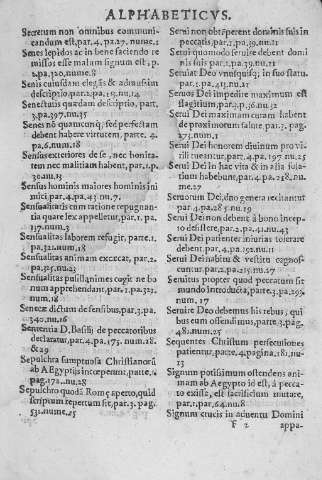 ALPHABETICVS.
Secretum non omnibus communi-
candum est, par.4. pa.27. nume.1
Senes lepidos ac in bene faciendo re
missos esse malum signum est, p
2.pa.320.nume.8
Senis cuiusdam elegās & admissim
descriptio par.2. pa.192. nu.14
Senectutis quædam descriptio, part.
3.pa.397.nu.35
Senes nō quatuncunq; sed perfectam
debent habere virtutem. parte. 4.
pa.6.num.18
Sensus exteriores de se, nec bonita-
tem nec malitiam habent, par.1.p.
30.nu.13
Sensus hominis maiores hominis ini
mici par.4.pa.43 nu.7.
Sensualitatis cum ratione repugnan-
tia quare lex appelletur, par.1. pa.
137.num.3
Sensualitas laborem refugit, parte.1.
pa.321.num.18
Sensualitas animam excæcat, par.2.
pa.215.nu.23
Sensualitas pusillanimes cogit ne bo
num apprehendant, par.1.pa.323.
num.18
Senecæ dictum de sensibus, par.3.pa.
340.nu.16
Sententia D. Basilij de peccatoribus
declaratur, par.4.pa.173. num.18.
& 29
Sepulchra sumptuosa Christianorū
ab Aegyptijs incœperunt, parte.4
pag.172.nu.28
Sepulchro quodā Romę aperto, quid
scriptum repertum sit, par.3. pag.
531.nume.25
Serui non obtēperent dominis suis in
peccatis, par.2.pa.39.nu.21
Serui quomodo seruire debent domi
nis suis par.2.pa.39.nu.21
Seruiat Deo vnusquisq; in suo statu,
par.2. pa.413.nu.21
Seruos Dei impedire maximum est
flagitium, par.2.p.36.nu.32
Serui Dei maximam curam habent
de proximorum salute par.3. pag.
273.nom.1
Serui Dei honorem diuinum pro vi-
ribus tuentur, part.4.pa.197 nu.25
Serui Dei in hac vita & in alia iusti-
tium habebunt, par.4.pa.238.nu
me.27
Seruorum Dei, dino genera recitantur
par.4.pa.28 5.nu.19
Serui Dei non debent à bono incep-
to desistere, par.2.pa.41.nu.43
Serui Dei patienter iniurias tolerare
debent par.4.pa.192.nu.11
Serui Dei habitu & vestitu cognos-
cuntur par.2.pa.215.nu.27
Seruitus propter quod peccatum sit
mundo introducta, parte.3.pa.292.
num. 17
Seruire Deo debemus his rebus, qui-
bus eum offendimus, parte.3.pag.
488.num.27
Sequentes Christum persecusiones
patiuntur, parte.4.pagina.181.nu-
13
Signum potissimum ostendens ani-
mam ab Aegypto id est, à pecca-
to exisse, est sacrificium mutare,
par.1.par.64.nu.8
Signum crucis in aduentu Domini
F 2 appa-